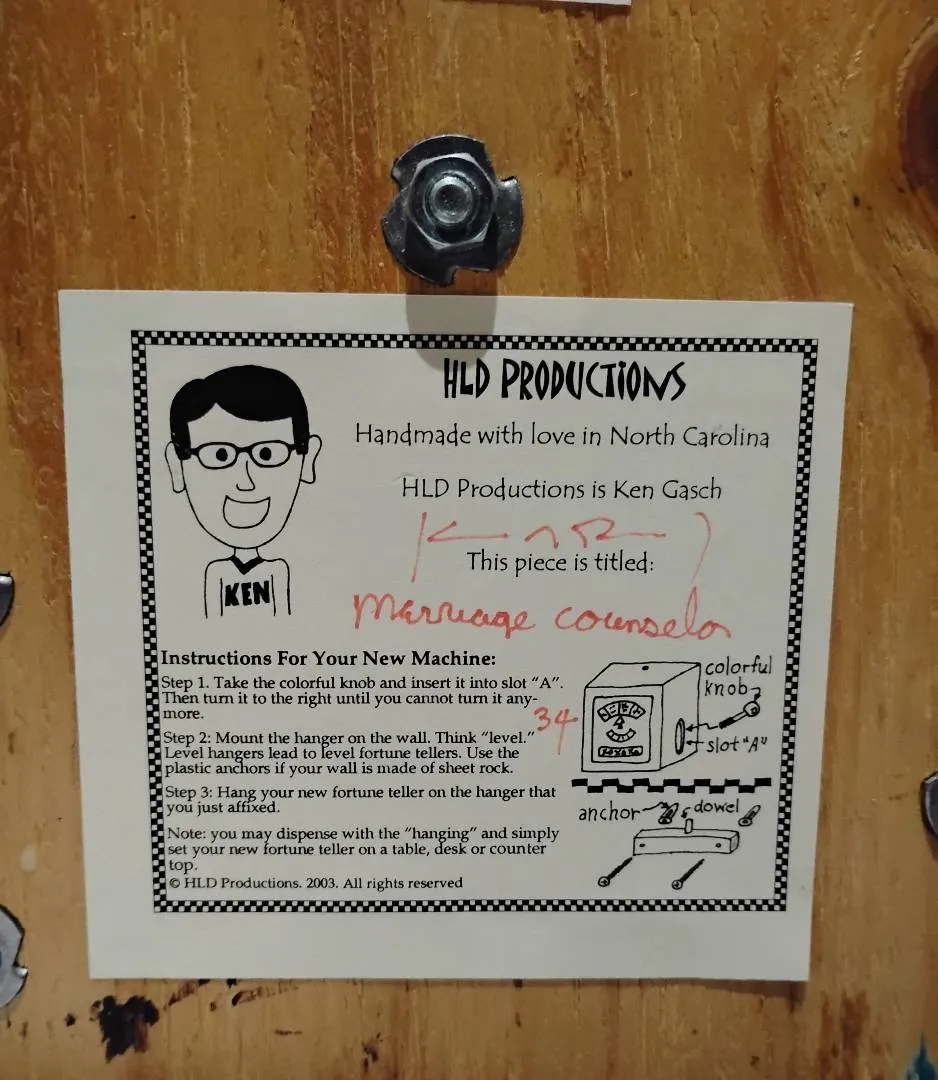 HLD PRODUCTIONS
Handmade with love in North Carolina
HLD Productions is Ken Gasch
This piece is titled:
Marriage counselor
KEN
Instructions For Your New Machine:
Step 1. Take the colorful knob and insert it into slot "A".
Then turn it to the right until you cannot turn it any-
more.
Step 2: Mount the hanger on the wall. Think "level."
Level hangers lead to level fortune tellers. Use the
plastic anchors if your wall is made of sheet rock.
Step 3: Hang your new fortune teller on the hanger that
you just affixed.
Note: you may dispense with the "hanging" and simply
set your new fortune teller on a table, desk or counter
top.
© HLD Productions. 2003. All rights reserved
34
colorful
knob
slot "A"
anchor
dowel